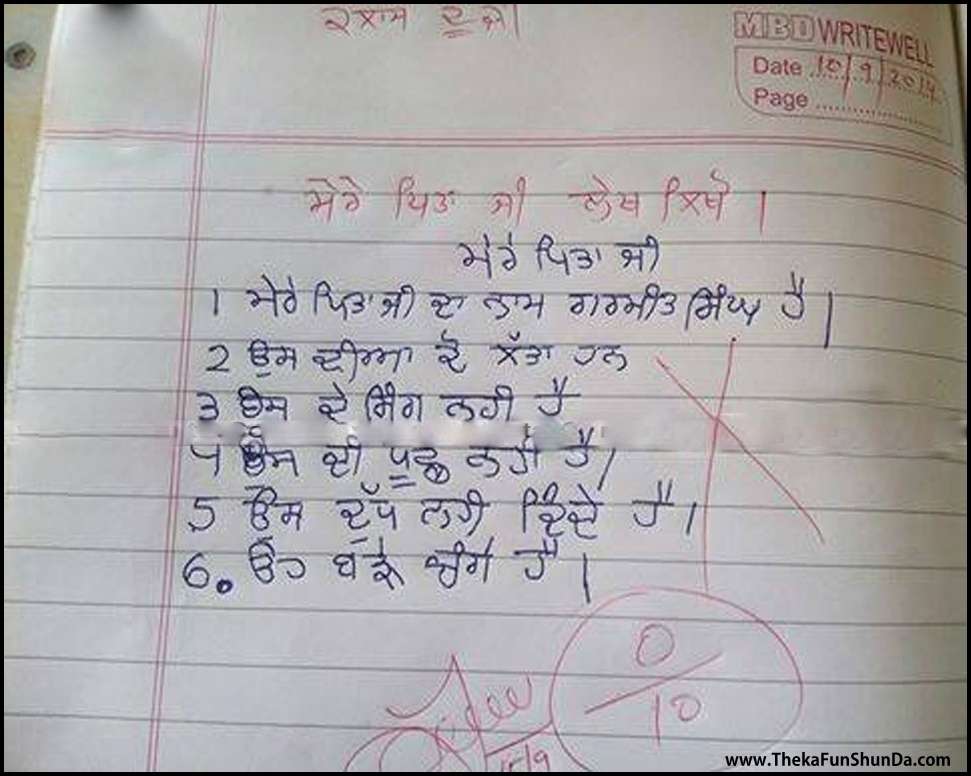 ਕਲਾਸ ਦੂਜੀ
MBD WRITEWELL
Date 10/9/2014
Page
ਮੇਰੇ ਪਿਤਾ ਜੀ ਲੇਖ ਲਿਖੋ ।
ਮੇਰੇ ਪਿਤਾ ਜੀ
1 ਮੇਰੇ ਪਿਤਾ ਜੀ ਦਾ ਨਾਮ ਗੁਰਮੀਤ ਸਿੰਘ ਹੈ ।
2 ਉਸ ਦੀਆ ਦੋ ਲੱਤਾ ਹਨ
3 ਉਸ ਦੇ ਸਿੰਗ ਨਹੀ ਹੈ
4 ਉਸ ਦੀ ਪੂਛ ਨਹੀ ਹੈ ।
5 ਉਸ ਦੁੱਧ ਨਹੀ ਦਿੰਦੇ ਹੈ ।
6. ਉਹ ਬੜੇ ਚੰਗੇ ਹੈ ।
0/10
15/9
www.ThekaFunShunDa.com